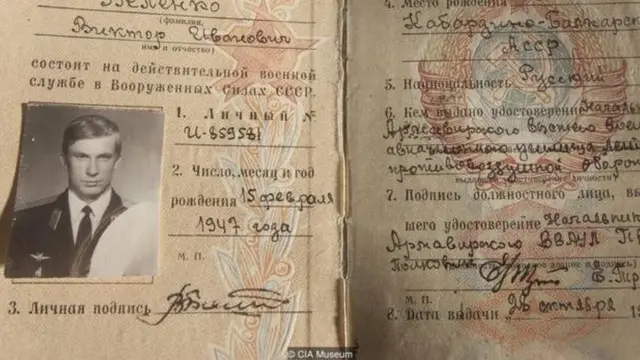 Беленко
(фамилия,
Виктор Иванович
имя и отчество)
состоит на действительной военной
службе в Вооруженных Силах СССР.
1. Личный №
И-859581
2. Число, месяц и год
рождения 15 февраля
1947 года
М. П.
3. Личная подпись
4. Место рождения
Кабардино-Балкарс
АССР
5. Национальность Русский
6. Кем выдано удостоверение Начальн
Армавирского высшего вое
авиационного училища лет
противовоздушной оборон
7. Подпись должностного лица, вы
шего удостоверение Начальник
Армавирского ВВАУЛ П
Полковник
М. П.
8. Дата выдачи „28 октября 19
© CIA Museum